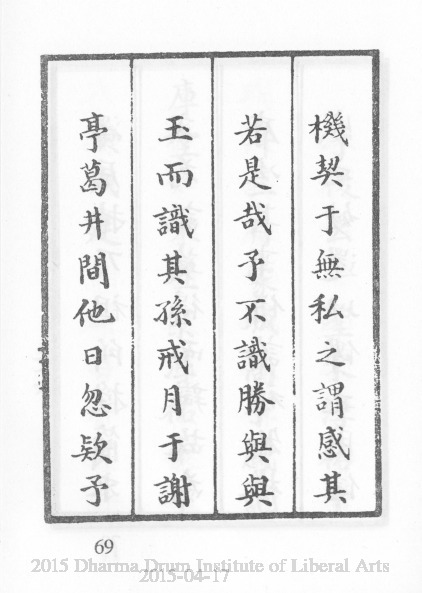 機契于無私之謂感其
若是哉予不識勝與與
玉而識其孫戒月于謝
亭葛井間他日忽欵予
69
2015 Dharma Drum Institute of Liberal Arts
2015-04-17